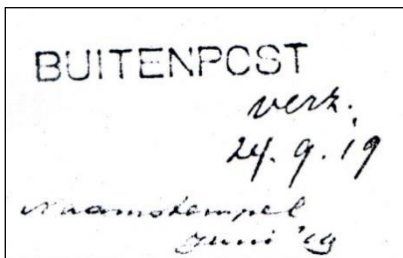 BUITENPOST
verz.
24.9.19
Naamstempel
Juni '19